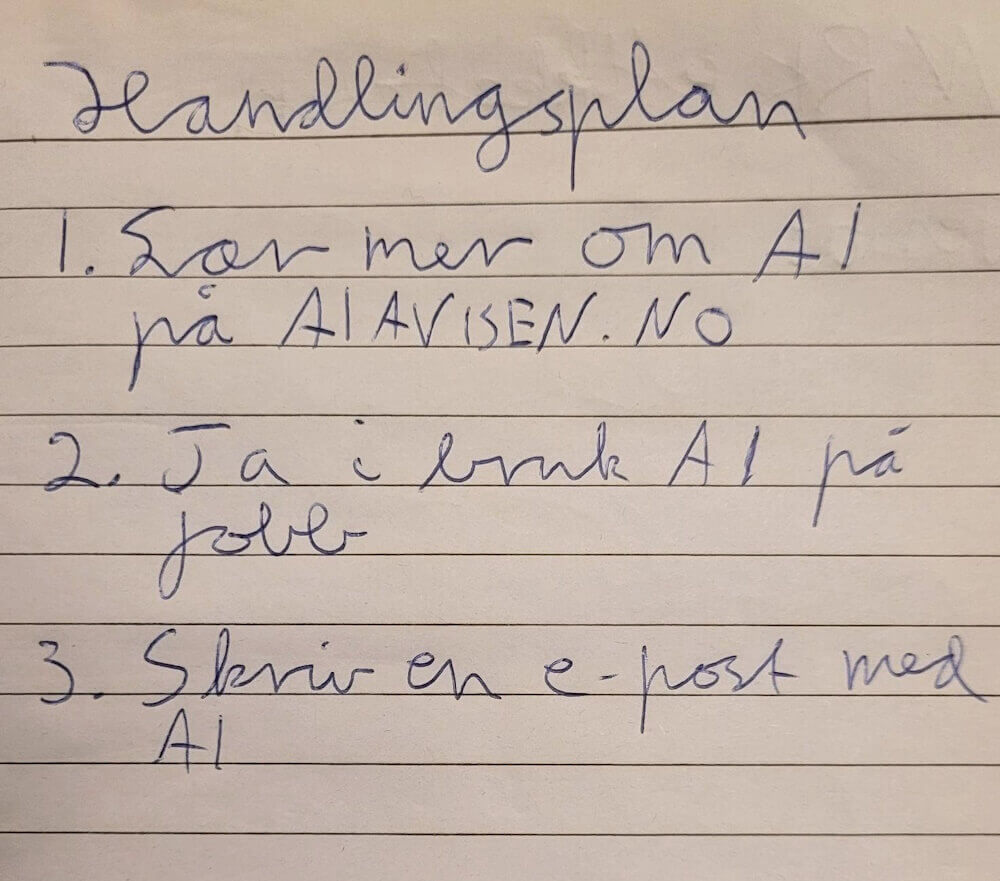 Handlingsplan
1. Lær mer om AI
på AIAVISEN.NO
2. Ta i bruk AI på
jobb
3. Skriv en e-post med
AI